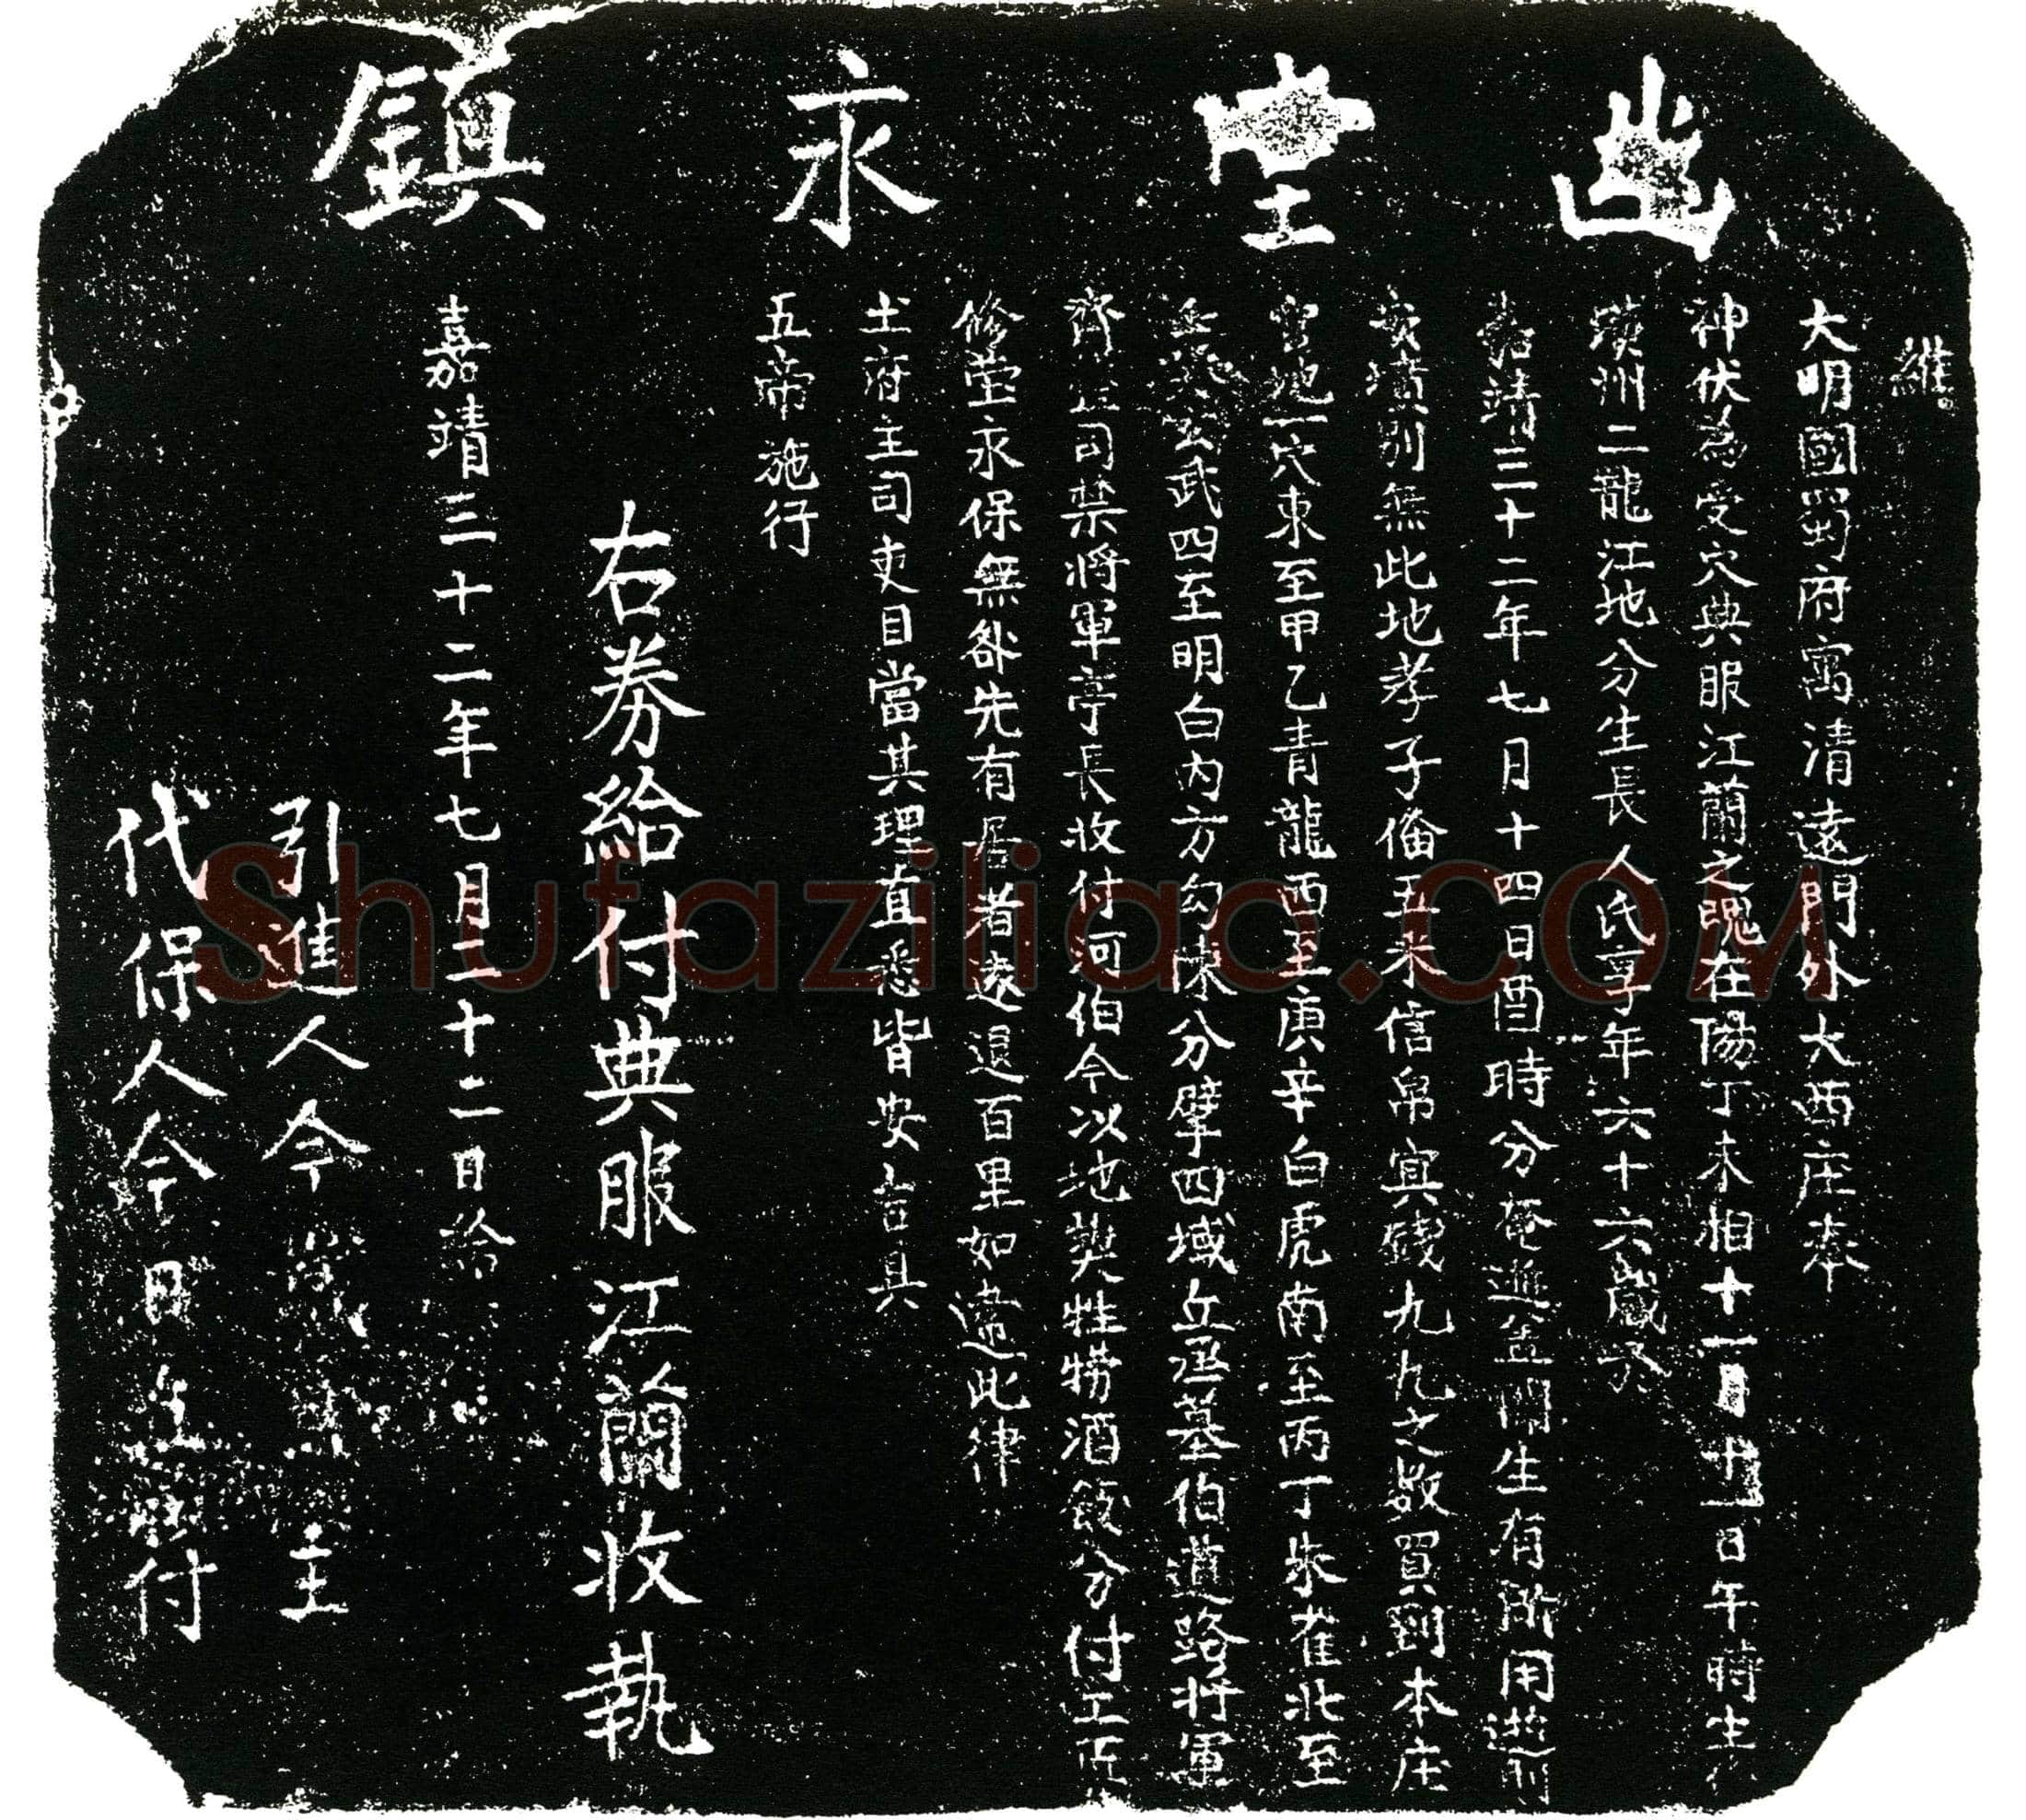 幽堂永鎮
維
大明國蜀府寓清遠門外大西庄奉
神伏為受穴典服江蘭之魄在陽丁未相十一月十日午時生
漢州二龍江地分生長人氏享年六十六歲于
嘉靖三十二年七月十四日酉時分奄逝盖聞生有所用逝
安墳則無此地孝子俻五釆信帛冥錢九九之數買到本庄
吉地一穴東至甲乙青龍西至庚辛白虎南至丙丁朱雀北至
壬癸玄武四至明白内方勾陳分擘四域丘丞墓伯道路将軍
齊 司禁將軍亭長收付河伯今以地契牲牢酒飯分付工正
修堂永保無咎先有居者速退百里如違此律
土府主司吏目當其理直悉皆安吉具
五帝施行
右券給付典服江蘭收執
嘉靖三十二年七月二十二日給
引進人今歲 主
代保人今日直 付
Shufaziliao.COM